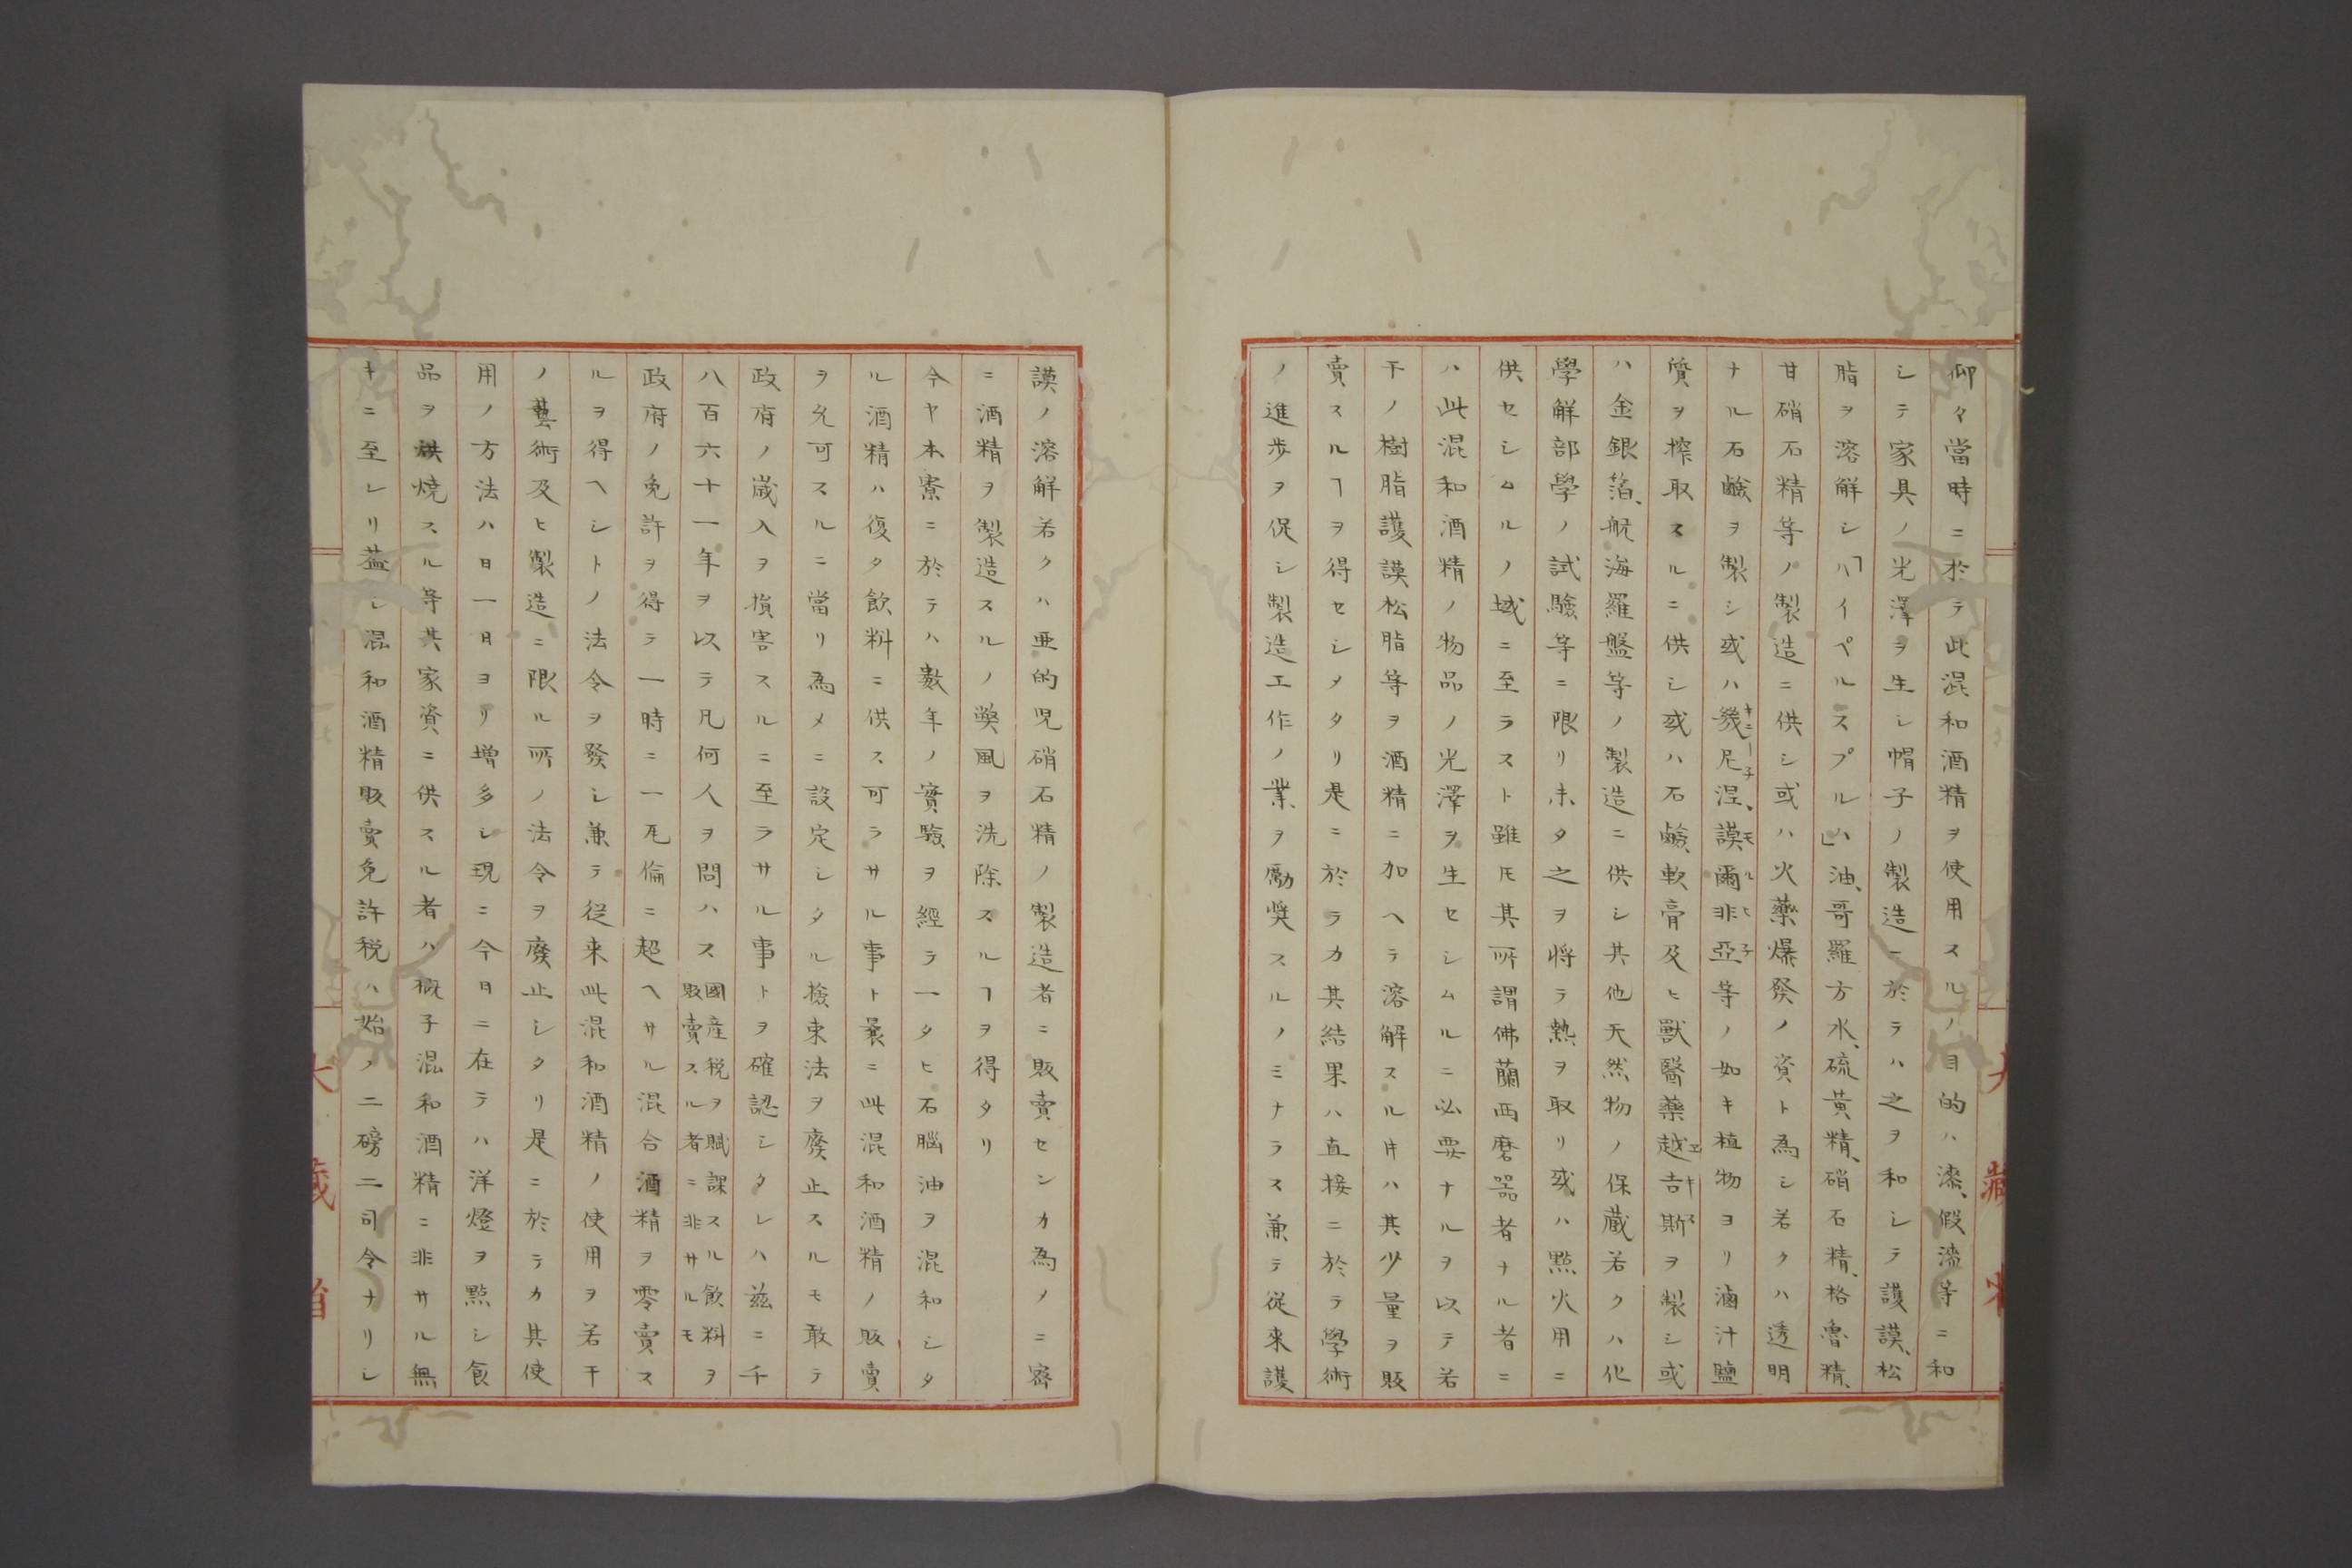 仰々當時ニ於テ此混和酒精ヲ使用スルノ目的ハ漆、假漆等ニ和
シテ家具ノ光澤ヲ生シ帽子ノ製造ニ於ラハ之ヲ和シテ護謨、松
脂ヲ溶解シ「ハイペルスプル」ハ油、哥羅方水、硫黄精、硝石精、格魯精、
甘硝石精等ノ製造ニ供シ或ハ火藥爆發ノ資ト為シ若クハ透明
ナル石鹸ヲ製シ或ハ幾尼涅、謨爾非亞等ノ如キ植物ヨリ滷汁鹽
質ヲ搾取スルニ供シ或ハ石鹸、軟膏及ヒ獸醫藥越吉斯ヲ製シ或
ハ金銀箔、航海羅盤等ノ製造ニ供シ其他天然物ノ保藏若クハ化
學解部學ノ試驗等ニ限リ未タ之ヲ将テ熱ヲ取リ或ハ點火用ニ
供セシムルノ域ニ至ラスト雖𪜈其所謂佛蘭西磨器者ナル者ニ
ハ此混和酒精ノ物品ノ光澤ヲ生セシムルニ必要ナルヲ以テ若
干ノ樹脂護謨松脂等ヲ酒精ニ加ヘテ溶解スル𪜈ハ其少量ヲ販
賣スルヿヲ得セシメタリ是ニ於ラカ其結果ハ直接ニ於テ學術
ノ進歩ヲ促シ製造工作ノ業ヲ勵奨スルノミナラス兼テ従來護
謨ノ溶解若クハ亜的児硝石精ノ製造者ニ販賣センカ為ノニ密
ニ酒精ヲ製造スルノ獘風ヲ洗除スルヿヲ得タリ
今ヤ本寮ニ於テハ數年ノ實驗ヲ經テ一タヒ石腦油ヲ混和シタ
ル酒精ハ復タ飲料ニ供ス可ラサル事ト曩ニ此混和酒精ノ販賣
ヲ允可スルニ當リ為メニ設定シタル撿束法ヲ廢止スルモ敢テ
政府ノ歳入ヲ損害スルニ至ラサル事トヲ確認シタレハ茲ニ千
八百六十一年ヲ以テ凡何人ヲ問ハス國産税ヲ賦課スル飲料ヲ
販賣スル者ニ非サルモ
政府ノ免許ヲ得テ一時ニ一瓦倫ニ超ヘサル混合酒精ヲ零賣ス
ルヲ得ヘシトノ法令ヲ發シ兼テ従来此混和酒精ノ使用ヲ若干
ノ藝術及ヒ製造ニ限ル所ノ法令ヲ廢止シタリ是ニ於テカ其使
用ノ方法ハ日一日ヨリ増多シ現ニ今日ニ在テハ洋燈ヲ點シ飲
品ヲ烘燒スル等其家資ニ供スル者ハ概子混和酒精ニ非サル無
キニ至レリ蓋シ混和酒精販賣免許税ハ始ノ二磅二司令ナリシ
大藏省